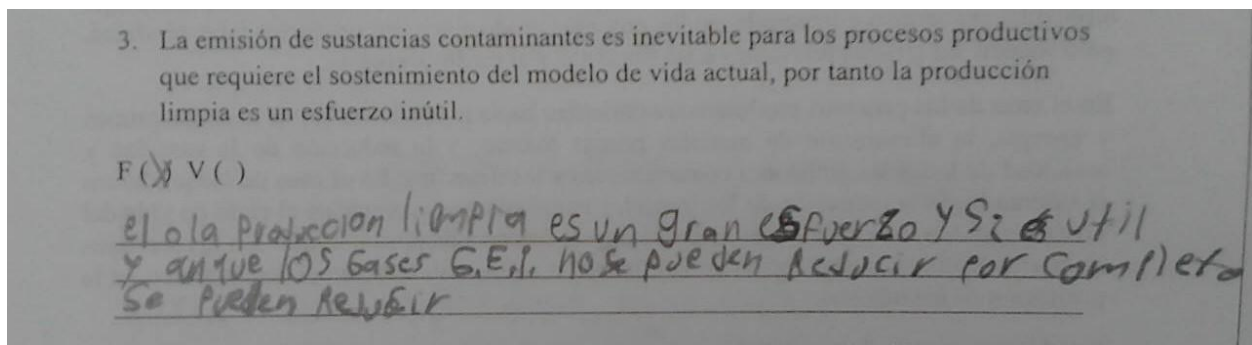 3. La emisión de sustancias contaminantes es inevitable para los procesos productivos
que requiere el sostenimiento del modelo de vida actual, por tanto la producción
limpia es un esfuerzo inútil.
F (X) V ( )
el o la Producción liempia es un gran esfuerzo y si es util
y anque los Gases G.E.I. no se pueden Reducir por completo
Se pueden